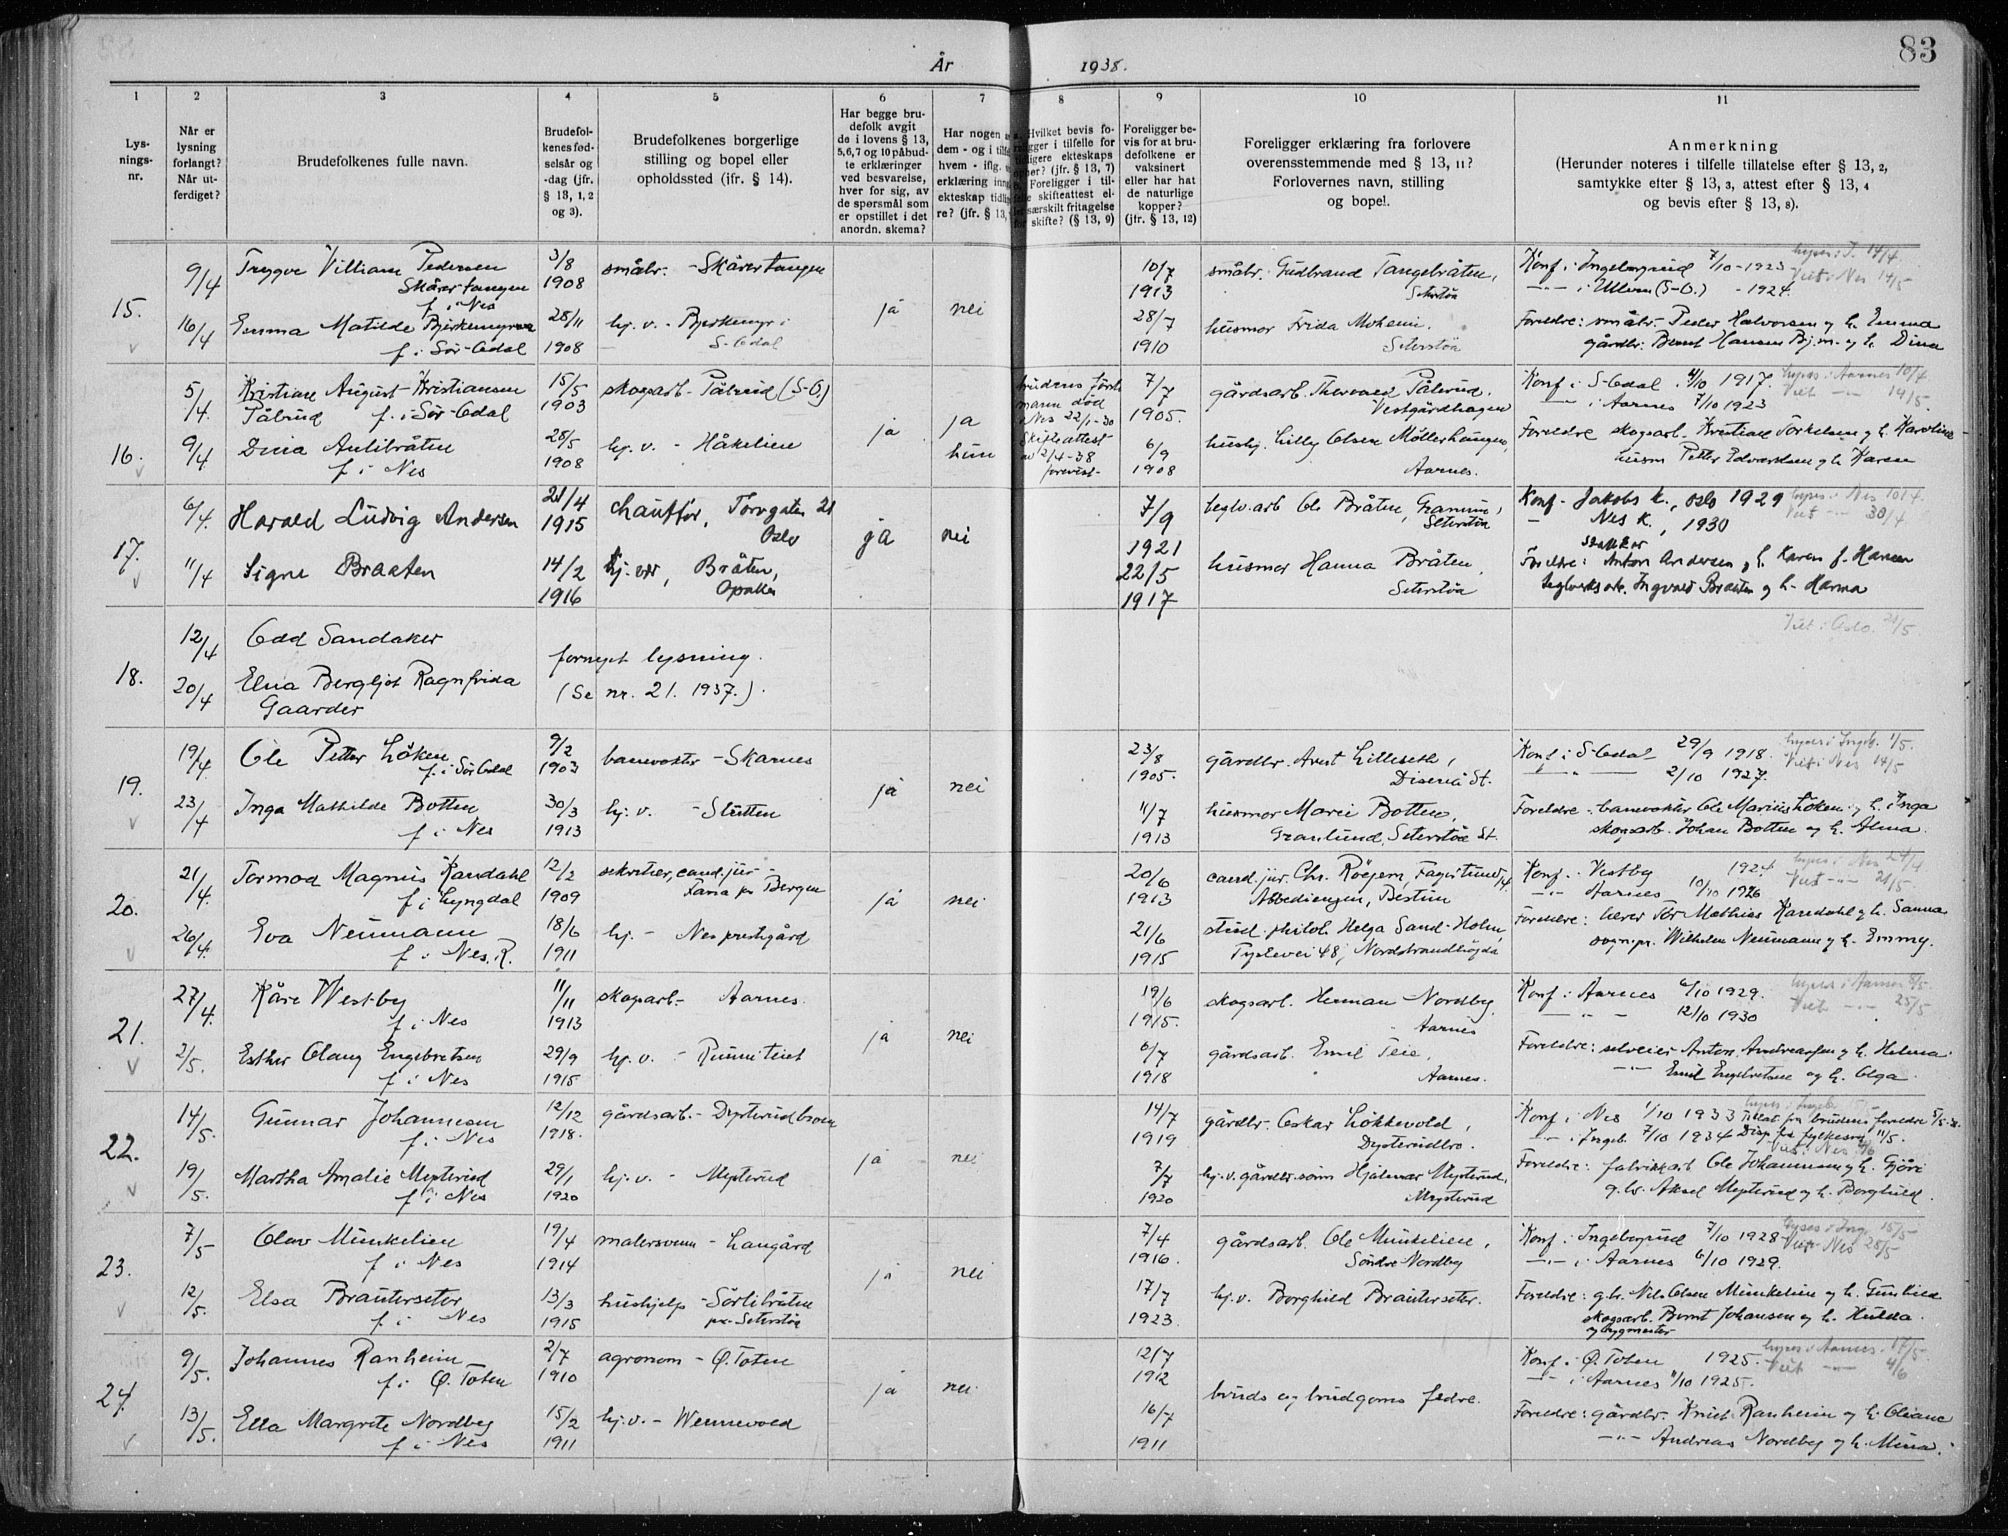 83
År 1938.
1 2 3 4 5 6 7 8 9 10 11
Lys-
nings-
nr.
Når er
lysning
forlangt?
Når ut-
ferdiget?
Brudefolkenes fulle navn.
Brudefol-
kenes fød-
selsår og
-dag (jfr.
§ 13, 1, 2
og 3).
Brudefolkenes borgerlige
stilling og bopel eller
opholdssted (jfr. § 14).
Har begge bru-
defolk avgit
de i lovens § 13,
5,6,7 og 10 påbud-
te erklæringer
ved besvarelse,
hver for sig, av
de spørsmål som
er opstillet i det
anordn. skema?
Har nogen
dem - og i
hvem - iflg.
erklæring
ekteskap
re? (jfr. § 13,
Hvilket bevis fo-
religger i tilfelle for
tidligere ekteskaps
opher? (jfr. § 13, 7)
Foreligger i til-
felle skifteattest el-
særskilt fritagelse
for skifte? (§ 13, 9)
Foreligger be-
vis for at bru-
defolkene er
vaksinert
eller har hat
de naturlige
kopper?
(jfr. § 13, 12)
Foreligger erklæring fra forlovere
overensstemmende med § 13, 11?
Forlovernes navn, stilling
og bopel.
Anmerkning
(Herunder noteres i tilfelle tillatelse efter § 13, 2,
samtykke efter § 13, 3, attest efter § 13, 4
og bevis efter § 13, 8).
15.
9/4 Trygve Villiam Pedersen 3/8 småbr. - Skårertangen 10/7 småbr. Gudbrand Tangebråten, Konf. i Ingeborgrud 7/10-1923
Skårertangen 1908 1913 Seterstøa i Ullern (S-O.) - 1924. Viet i Nes 14/5
f. i Nes ja nei
16/4 Emma Matilde Bjerkemyren 28/11 hj. v. - Bjerkemyr i 28/7 husmor Frida Moheim. Foreldre: småbr. Peder Halvorsen og h. Emma
f. i Sør-Odal 1908 S-Odal 1910 Seterstøa gårdbr. Bernt Hansen Bj.m. og h. Dina
16.
5/4. Kristian August Kristiansen 15/5 skogsarb. Pålrud (S-O.) brudens første 7/7 gårdsarb. Thorvald Pålrud. Konf. i S-Odal. 1/10 1917. lyses i Aarnes 10/4
Pålrud f. i Sør-Odal 1903 mann død 1905. Vestgårdhagen i Aarnes 7/10 1923 Viet 14/5.
i Nes 22/1-30
9/4 Dina Aulibråten 28/5 hj. v. - Håkelien ja ja Skifteattest 6/9 hushj. Lilly Olsen Møllerhaugen, Foreldre skogsarb. Kristian Torkelsen og h. Karoline
f. i Nes 1908 hun av 2/4-38 1908 Aarnes. husm Petter Edvardsen og h. Karen
forevist
17.
6/4. Harald Ludvig Andersen 21/4 chauffør, Torvgaten 21 7/9 teglv.arb. Ole Bråten, Konf. Jakobs k., Oslo 1929 lyses i Nes 10/4.
1915 Oslo ja nei 1921 Seterstøa Nes k., 1930 Viet 30/4
11/4 Signe Braaten 14/2 hj. vær, Bråten, 22/5 husmor Hanna Bråten, Foreldre: Anton Andersen og h. Karen f. Hansen
1916 Opaker 1917 Seterstøa teglverksarb. Ingvald Braaten og h. Hanna
18.
12/4 Odd Sandaker Viet i Oslo. 21/5.
fornyet lysning.
20/4 Elna Bergljot Ragnfrida (Se nr. 21. 1937.).
Gaarder
19.
19/4 Ole Petter Løken 9/2 banevokter - Skarnes 23/8 gårdbr. Arnt Lilleseth, Konf. i S-Odal 29/9 1918. lyses i Ingeb. 1/5.
f. i Sør Odal 1903 1905. Disenå St. 2/10 1927. Viet i Nes 14/5
ja nei
23/4 Inga Mathilde Botten 30/3 hj. v. - Slutten 11/7 husmor Marie Botten, Foreldre: banevokter Ole Marius Løken og h. Inga
f. i Nes 1913 1913 Granlund, Seterstøa St. skogsarb. Johan Botten og h. Alma.
20.
21/4. Tormod Magnus Kandahl 12/2 sekretær, cand. jur. - 20/6 cand. jur. Chr. Röejem, Konf. i Vestby 1924 lyses i Nes 24/4
f. i Lyngdal 1909 Fana pr. Bergen 1913 Abbediengen, Bestun Aarnes 10/10 1926 Viet 21/5
ja nei
26/4. Eva Neumann 18/6 hj. - Nes prestgård 21/6 stud. philol. Helga Sand-Holm, Foreldre: lærer Tor Mathias Kandahl og h. Sanna
f. i Nes. R. 1911 1915 48, Nordstrandhögda sogn.pr. Wilhelm Neumann og h. Emmy.
21.
27/4. Kåre Westby 11/11 skogsarb. - Aarnes. 19/6 skogsarb. Herman Nordby, Konf. i Aarnes 6/10 1929. lyses i Aarnes 8/5.
f. i Nes 1913 1915. Aarnes 12/10 1930 Viet 25/5.
ja nei
2/5. Esther Olaug Engebretsen 29/9 hj. v. - Runniteiet 6/7 gårdsarb. Emil Teie, Foreldre: selveier Anton Andreassen og h. Helma
f. i Nes 1915 1918 Aarnes. Emil Engebretsen og h. Olga.
22.
14/5. Gunnar Johannesen 12/12 gårdsarb. - Dysterudbroen 14/7 gårdbr. Oskar Løkkevold, Konf. i Nes 1/10 1933 Tillat. fra brudens foreldre
f. i Nes 1918. 1919 Dysterudbro. i Ingeb. 7/10 1934 Disp. fra fylkesm. 11/5.
ja nei
19/5. Martha Amalie Mysterud 29/1 hj. v. - Mysterud 7/7 hj. v. gårdbr.sønn Hjalmar Mysterud, Foreldre: fabrikkarb. Ole Johannesen og h.
f. i Nes 1920 1920 Mysterud g. br. Aksel Mysterud og h. Borghild.
23.
7/5 Olav Munkelien 19/4 malersvenn - Haugård 7/4 gårdsarb. Ole Munkelien, Konf. i Ingeborgrud 7/10 1928 lyses i Ing. 15/5
f. i Nes 1914 1916. Søndre Nordby i Aarnes 6/10 1929. Viet Nes 28/5
ja nei
12/5. Elsa Brauterseter 13/3 hushjelp - Sørlibråten 17/7 hj. v. Borghild Brauterseter. Foreldre: g. br. Nils Olsen Munkelien og h. Gunhild
f. i Nes 1915 pr. Seterstøa 1923. skogsarb. Bernt Johansen og h. Hulda.
og bygmester
24.
9/5. Johannes Ranheim 2/7 agronom - Ø. Toten 12/7 Konf. i Ø. Toten 1925. lyses i Aarnes 17/5
f. i Ø. Toten 1910 1912 i Aarnes 11/10 1925. Viet 4/6
ja nei bruds og brudgoms fedre.
13/5. Ella Margrete Nordby 15/2 hj. v. - Wennevold 16/7 Foreldre: gårdbr. Knut Ranheim og h. Oliane
f. i Nes 1911 1911 Andreas Nordby og h. Mina.